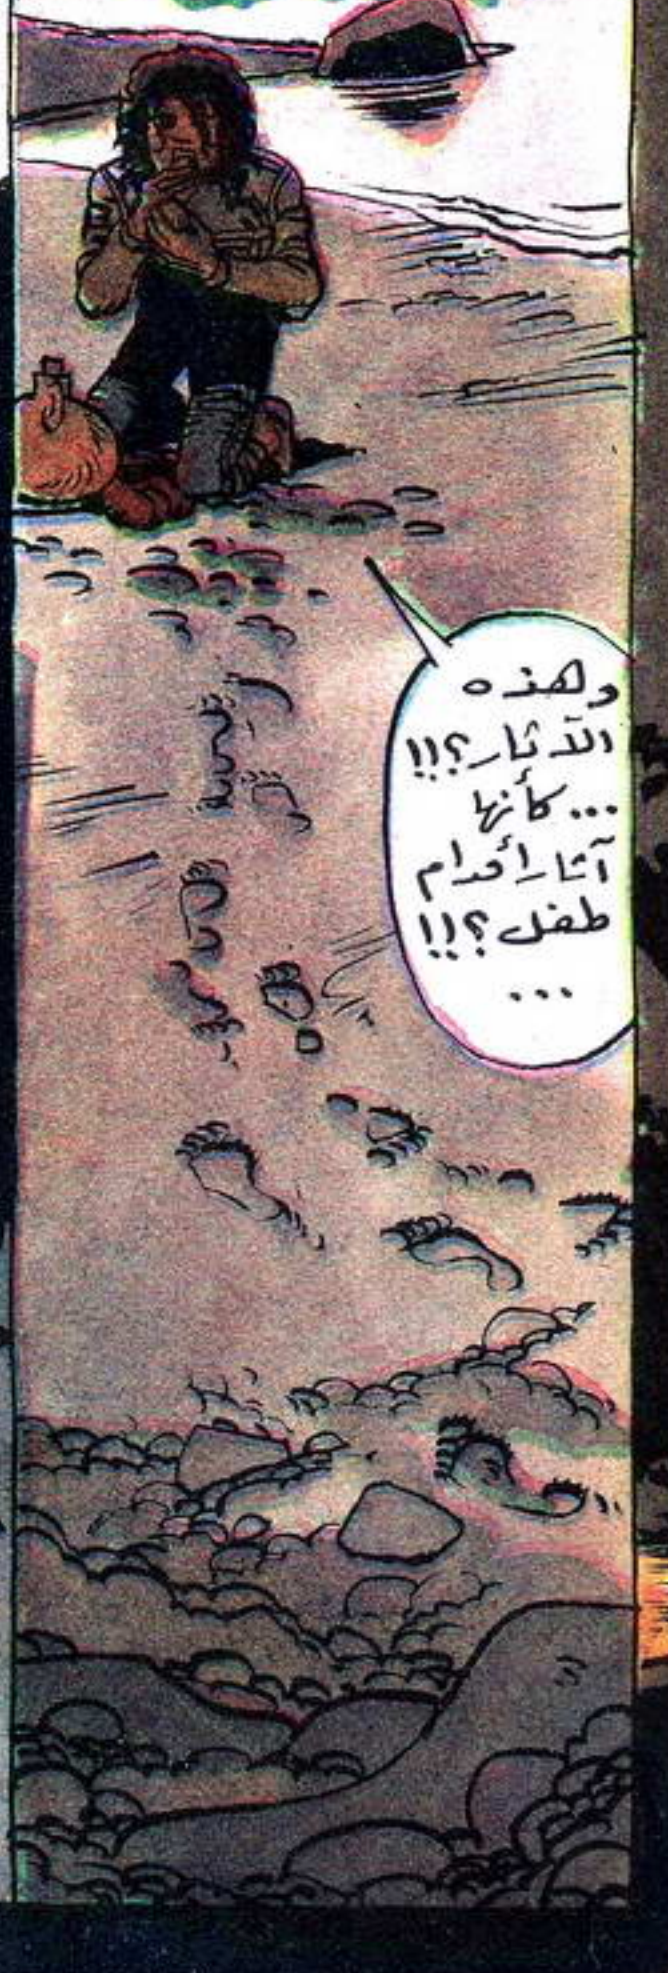 وهذه
الآثار؟!!
... كأنها
آثار أقدام
طفل؟!!
...